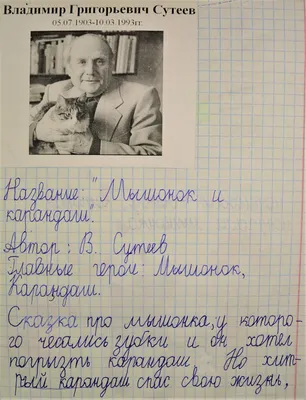 Владимир Григорьевич Сутеев
05.07.1903-10.03.1993гг.
Название: "Мышонок и
карандаш".
Автор: В. Сутеев
Главные герои: Мышонок,
Карандаш.
Сказка про мышонка, у которо-
го чесались зубки и он хотел
погрызть карандаш. Но хит-
рый карандаш спас свою жизнь,